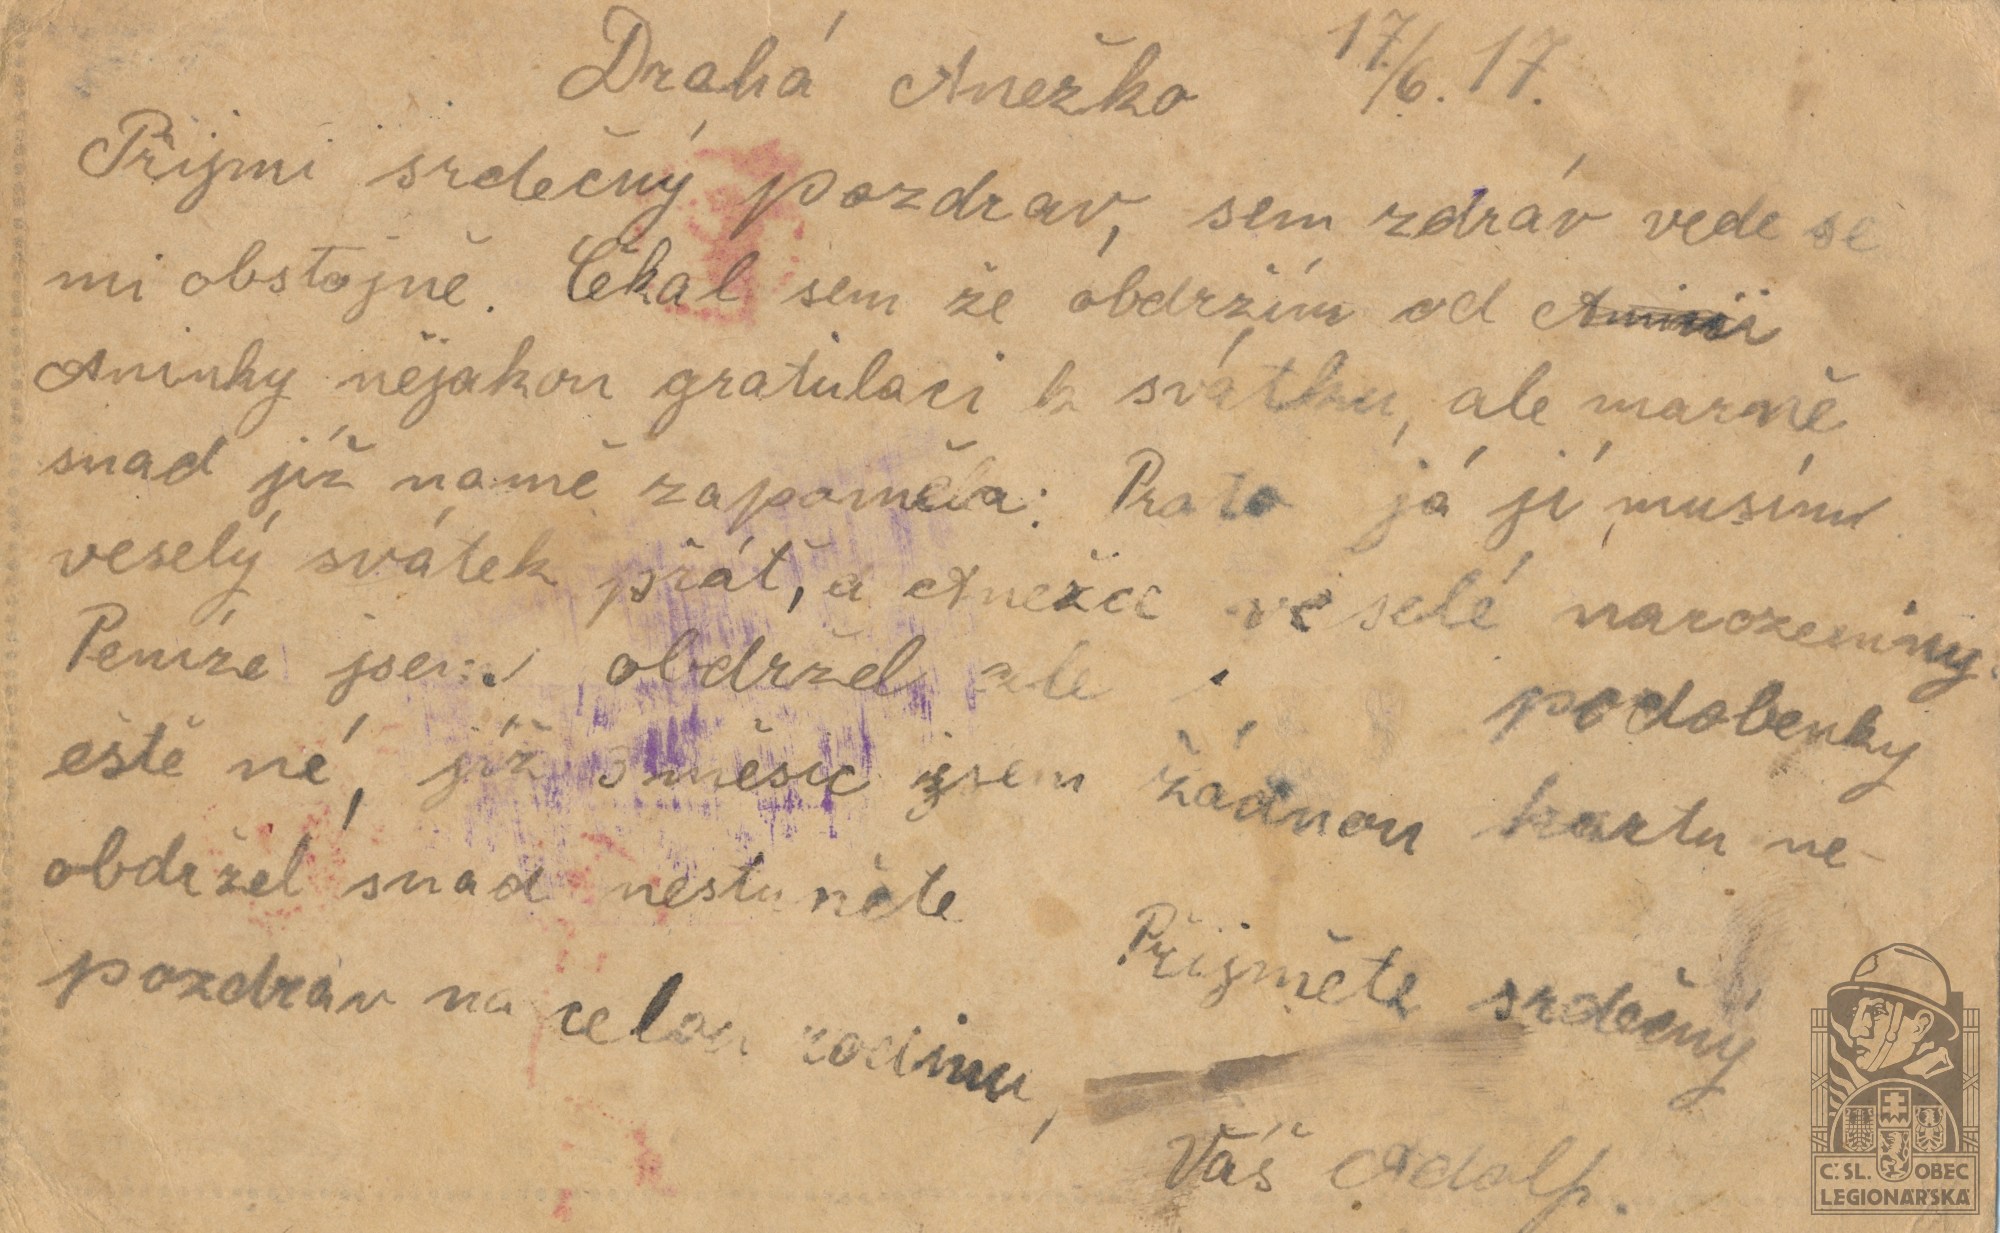 Drahá Anežko 17/6. 17.
Přijmi srdečný pozdrav, sem zdráv vede se
mi obstojně. Čekal sem že obdržím od
Aninky nějakou gratulaci k svátku, ale marně
snad již namě zapoměla. Proto já jí musím
veselý svátek přát, a Anežce veselé narozeniny.
Peníze jsem obdržel ale podobenky
eště né, již měsíc jsem žádnou kartu ne-
obdržel snad nestůněte
Přijměte srdečný
pozdrav na celou rodinu,
Váš Adolf.
Č. SL. OBEC
LEGIONÁŘSKÁ